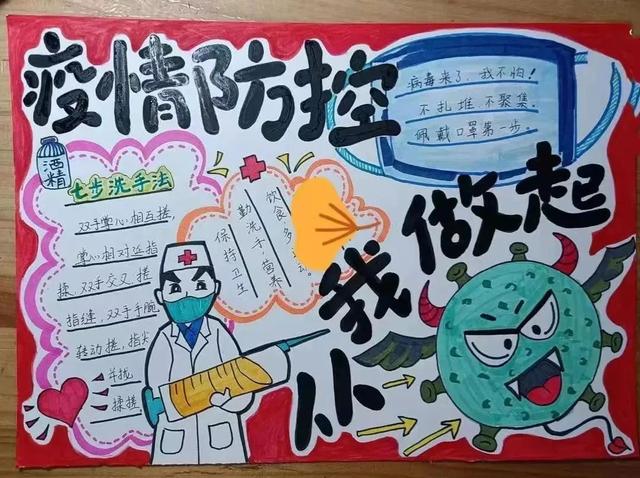 疫情防控
病毒来了，我不怕！
不扎堆，不聚集.
佩戴口罩第一步.
从我做起
酒精
七步洗手法
双手掌心相互搓，
掌心相对 指
揉，双手交叉搓
指缝，双手手腕
转动搓，指尖
并拢
揉搓
保持卫生
勤洗手，营养
饮食多 动